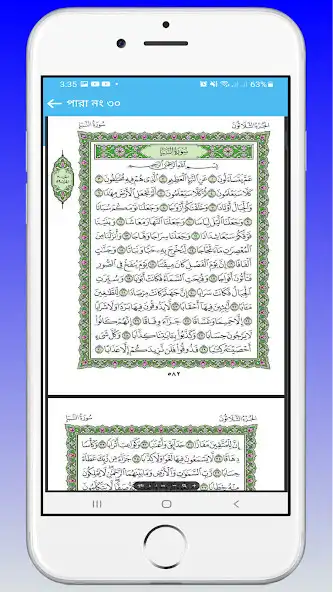 3:35 63%
পারা নং ৩০
سُورَةُ النَّبَإِ الجُزْءُ الثَّلَاثُونَ
سُورَةُ النَّبَإِ
بِسْمِ اللَّهِ الرَّحْمَٰنِ الرَّحِيمِ
عَمَّ يَتَسَآءَلُونَ ۝ عَنِ ٱلنَّبَإِ ٱلْعَظِيمِ ۝ ٱلَّذِى هُمْ فِيهِ مُخْتَلِفُونَ ۝
كَلَّا سَيَعْلَمُونَ ۝ ثُمَّ كَلَّا سَيَعْلَمُونَ ۝ أَلَمْ نَجْعَلِ ٱلْأَرْضَ مِهَٰدًا ۝
وَٱلْجِبَالَ أَوْتَادًا ۝ وَخَلَقْنَٰكُمْ أَزْوَٰجًا ۝ وَجَعَلْنَا نَوْمَكُمْ سُبَاتًا
۝ وَجَعَلْنَا ٱلَّيْلَ لِبَاسًا ۝ وَجَعَلْنَا ٱلنَّهَارَ مَعَاشًا ۝ وَبَنَيْنَا
فَوْقَكُمْ سَبْعًا شِدَادًا ۝ وَجَعَلْنَا سِرَاجًا وَهَّاجًا ۝ وَأَنزَلْنَا مِنَ
ٱلْمُعْصِرَٰتِ مَآءً ثَجَّاجًا ۝ لِّنُخْرِجَ بِهِۦ حَبًّا وَنَبَاتًا ۝ وَجَنَّٰتٍ
أَلْفَافًا ۝ إِنَّ يَوْمَ ٱلْفَصْلِ كَانَ مِيقَٰتًا ۝ يَوْمَ يُنفَخُ فِى ٱلصُّورِ
فَتَأْتُونَ أَفْوَاجًا ۝ وَفُتِحَتِ ٱلسَّمَآءُ فَكَانَتْ أَبْوَٰبًا ۝ وَسُيِّرَتِ
ٱلْجِبَالُ فَكَانَتْ سَرَابًا ۝ إِنَّ جَهَنَّمَ كَانَتْ مِرْصَادًا ۝ لِّلطَّٰغِينَ
مَـَٔابًا ۝ لَّٰبِثِينَ فِيهَآ أَحْقَابًا ۝ لَّا يَذُوقُونَ فِيهَا بَرْدًا وَلَا شَرَابًا
۝ إِلَّا حَمِيمًا وَغَسَّاقًا ۝ جَزَآءً وِفَاقًا ۝ إِنَّهُمْ كَانُوا۟
لَا يَرْجُونَ حِسَابًا ۝ وَكَذَّبُوا۟ بِـَٔايَٰتِنَا كِذَّابًا ۝ وَكُلَّ شَىْءٍ
أَحْصَيْنَٰهُ كِتَٰبًا ۝ فَذُوقُوا۟ فَلَن نَّزِيدَكُمْ إِلَّا عَذَابًا ۝
٥٨٢
سُورَةُ النَّبَإِ الجُزْءُ الثَّلَاثُونَ
إِنَّ لِلْمُتَّقِينَ مَفَازًا ۝ حَدَآئِقَ وَأَعْنَٰبًا ۝ وَكَوَاعِبَ أَتْرَابًا ۝ وَكَأْسًا
دِهَاقًا ۝ لَّا يَسْمَعُونَ فِيهَا لَغْوًا وَلَا كِذَّٰبًا ۝ جَزَآءً مِّن رَّبِّكَ عَطَآءً
حِسَابًا ۝ رَّبِّ ٱلسَّمَٰوَٰتِ وَٱلْأَرْضِ وَمَا بَيْنَهُمَا ٱلرَّحْمَٰنِ لَا يَمْلِكُونَ